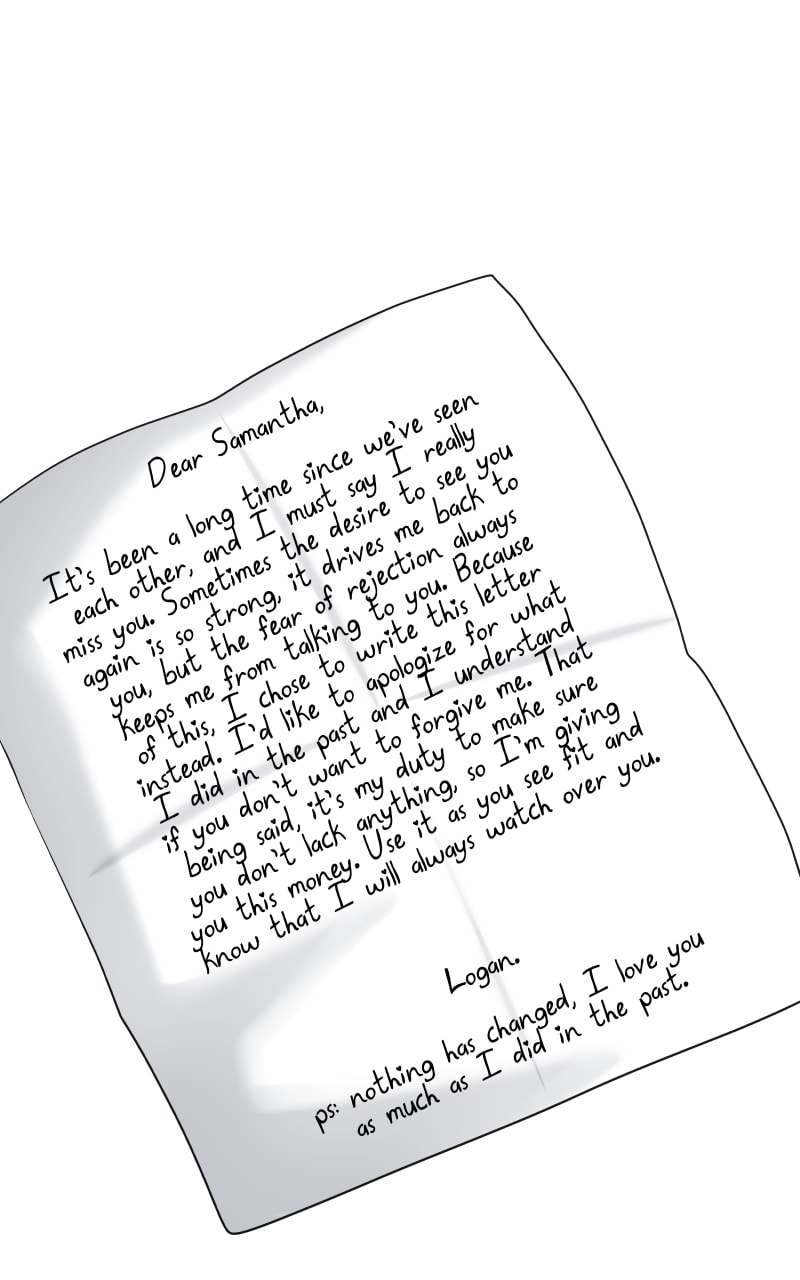 Dear Samantha,
It's been a long time since we've seen
each other, and I must say I really
miss you. Sometimes the desire to see you
again is so strong, it drives me back to
you, but the fear of rejection always
keeps me from talking to you. Because
of this, I chose to write this letter
instead. I'd like to apologize for what
I did in the past and I understand
if you don't want to forgive me. That
being said, it's my duty to make sure
you don't lack anything, so I'm giving
you this money. Use it as you see fit and
know that I will always watch over you.
Logan.
ps: nothing has changed, I love you
as much as I did in the past.